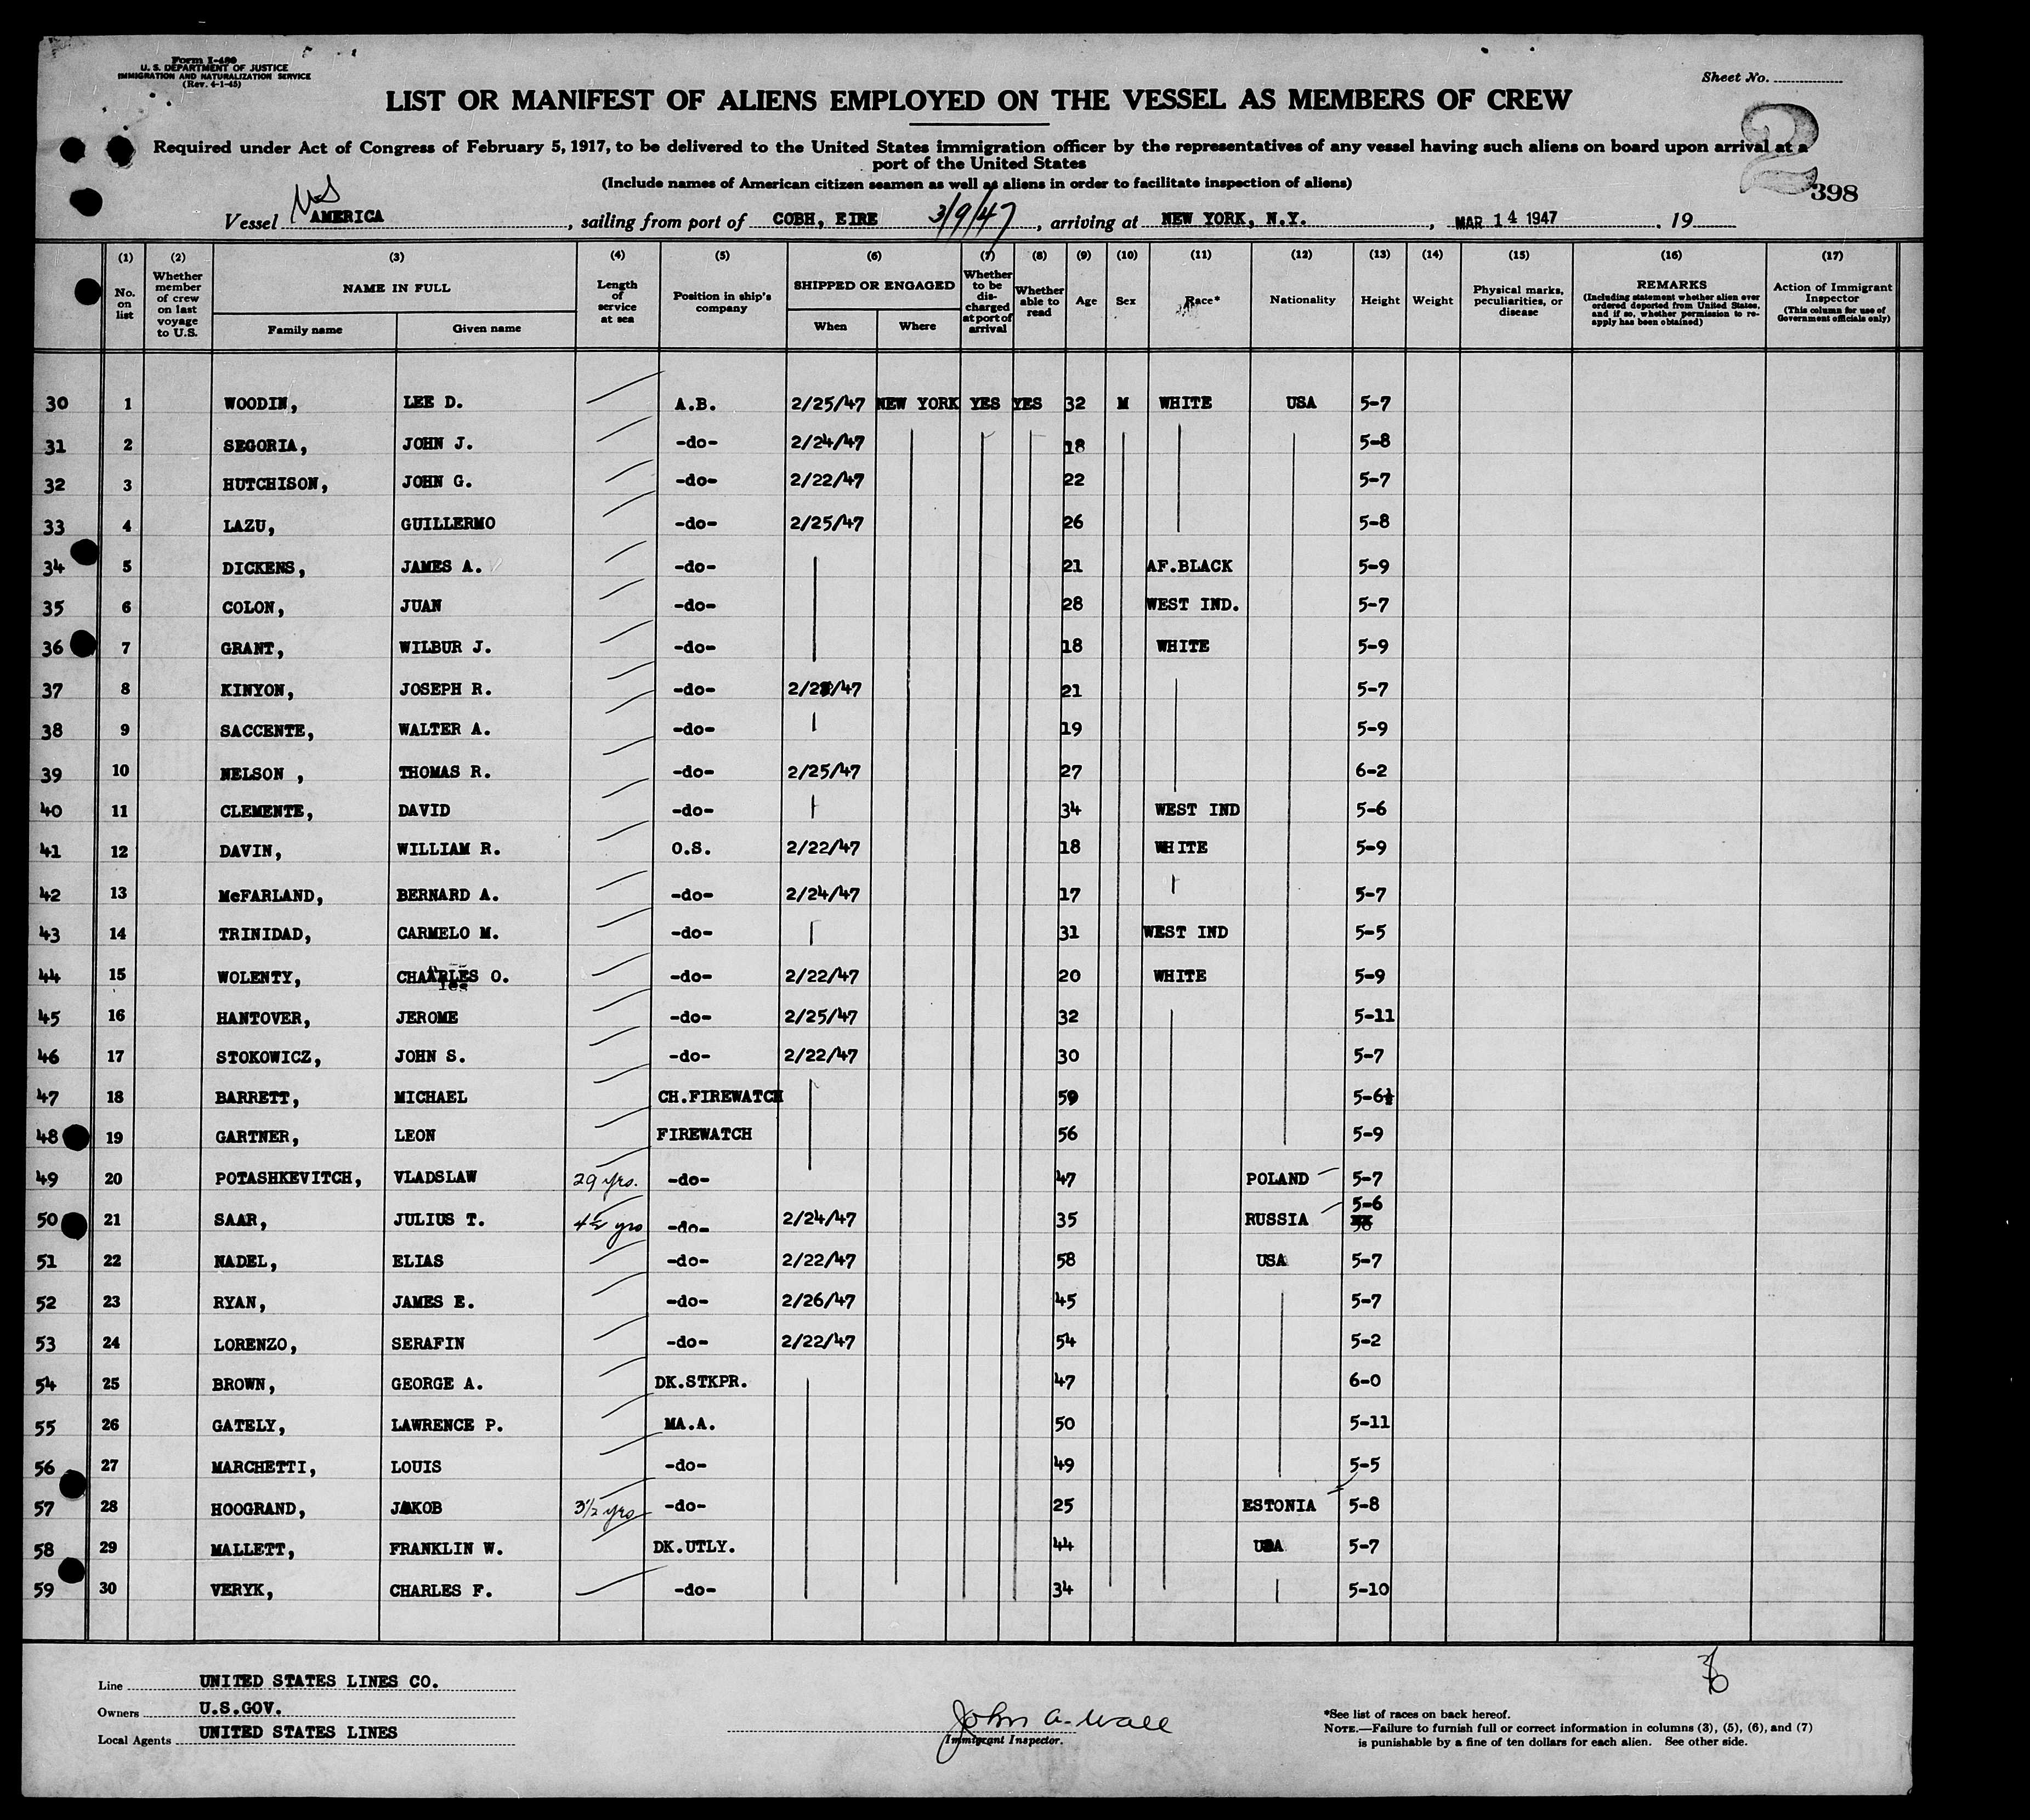 Form I-480
U. S. DEPARTMENT OF JUSTICE
IMMIGRATION AND NATURALIZATION SERVICE
(Rev. 4-1-45)
Sheet No.
LIST OR MANIFEST OF ALIENS EMPLOYED ON THE VESSEL AS MEMBERS OF CREW
2
Required under Act of Congress of February 5, 1917, to be delivered to the United States immigration officer by the representatives of any vessel having such aliens on board upon arrival at a
port of the United States
(Include names of American citizen seamen as well as aliens in order to facilitate inspection of aliens)
398
Vessel AMERICA, sailing from port of COBH, EIRE 3/9/47, arriving at NEW YORK, N.Y., MAR 14 1947. 19
(1) (2) (3) (4) (5) (6) (7) (8) (9) (10) (11) (12) (13) (14) (15) (16) (17)
No. on list
Whether member of crew on last voyage to U.S.
NAME IN FULL
Family name Given name
Length of service at sea
Position in ship's company
SHIPPED OR ENGAGED
When Where
Whether to be discharged at port of arrival
Whether able to read
Age
Sex
Race*
Nationality
Height
Weight
Physical marks, peculiarities, or disease
REMARKS
(Including statement whether alien ever ordered deported from United States, and if so, whether permission to re-apply has been obtained)
Action of Immigrant Inspector
(This column for use of Government officials only)
30 1 WOODIN, LEE D. A.B. 2/25/47 NEW YORK YES YES 32 M WHITE USA 5-7
31 2 SEGORIA, JOHN J. -do- 2/24/47 18 5-8
32 3 HUTCHISON, JOHN G. -do- 2/22/47 22 5-7
33 4 LAZU, GUILLERMO -do- 2/25/47 26 5-8
34 5 DICKENS, JAMES A. -do- 21 AF.BLACK 5-9
35 6 COLON, JUAN -do- 28 WEST IND. 5-7
36 7 GRANT, WILBUR J. -do- 18 WHITE 5-9
37 8 KINYON, JOSEPH R. -do- 21 5-7
38 9 SACCENTE, WALTER A. -do- 19 5-9
39 10 NELSON , THOMAS R. -do- 2/25/47 27 6-2
40 11 CLEMENTE, DAVID -do- 34 WEST IND 5-6
41 12 DAVIN, WILLIAM R. O.S. 2/22/47 18 WHITE 5-9
42 13 McFARLAND, BERNARD A. -do- 2/24/47 17 5-7
43 14 TRINIDAD, CARMELO M. -do- 31 WEST IND 5-5
44 15 WOLENTY, CHARLES O. -do- 2/22/47 20 WHITE 5-9
45 16 HANTOVER, JEROME -do- 2/25/47 32 5-11
46 17 STOKOWICZ, JOHN S. -do- 2/22/47 30 5-7
47 18 BARRETT, MICHAEL CH.FIREWATCH 59 5-6½
48 19 GARTNER, LEON FIREWATCH 56 5-9
49 20 POTASHKEVITCH, VLADSLAW 29 yrs. -do- 47 POLAND 5-7
50 21 SAAR, JULIUS T. 4½ yrs -do- 2/24/47 35 RUSSIA 5-6
51 22 NADEL, ELIAS -do- 2/22/47 58 USA 5-7
52 23 RYAN, JAMES E. -do- 2/26/47 45 5-7
53 24 LORENZO, SERAFIN -do- 2/22/47 54 5-2
54 25 BROWN, GEORGE A. DK.STKPR. 47 6-0
55 26 GATELY, LAWRENCE P. MA.A. 50 5-11
56 27 MARCHETTI, LOUIS -do- 49 5-5
57 28 HOOGRAND, JAKOB 3½ yrs -do- 25 ESTONIA 5-8
58 29 MALLETT, FRANKLIN W. DK.UTLY. 44 USA 5-7
59 30 VERYK, CHARLES F. -do- 34 5-10
Line UNITED STATES LINES CO.
Owners U.S.GOV.
Local Agents UNITED STATES LINES
John A. Wall
Immigrant Inspector.
*See list of races on back hereof.
NOTE.—Failure to furnish full or correct information in columns (3), (5), (6), and (7)
is punishable by a fine of ten dollars for each alien. See other side.